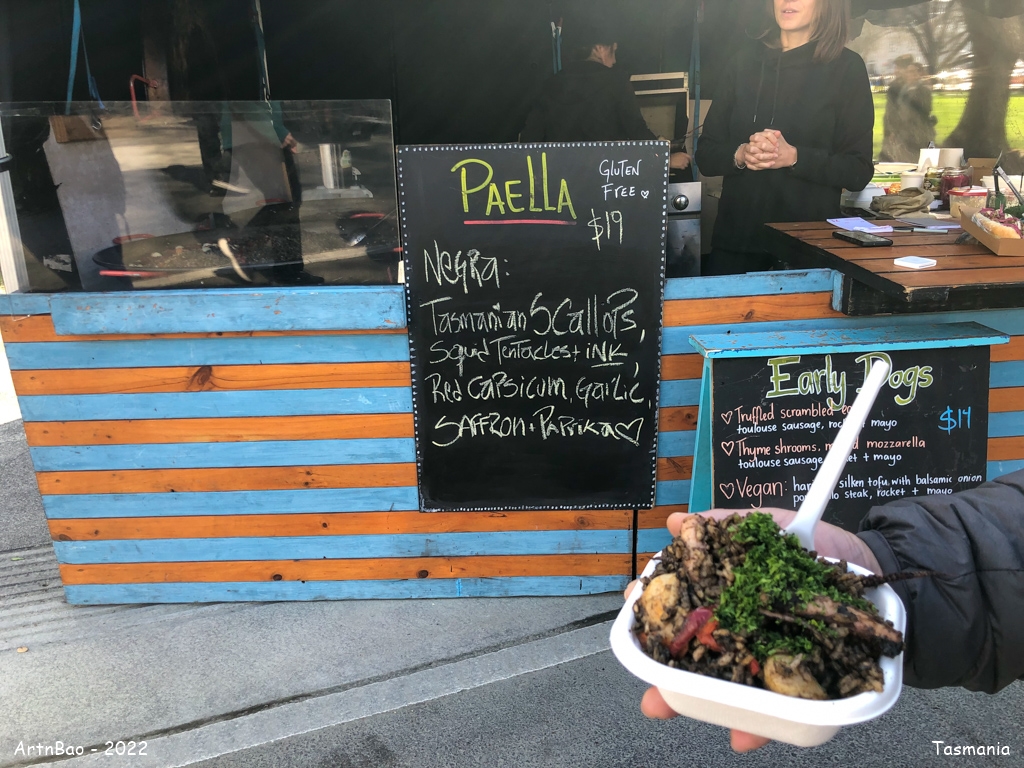 PAELLA
GLUTEN
FREE
$19
NEGRA:
Tasmanian Scallops,
Squid Tentacles + INK,
Red Capsicum, Garlic,
SAFFRON + PAPRIKA
Early Dogs
Truffled scrambled
$14
toulouse sausage, mayo
Thyme shrooms, mozzarella
toulouse sausage + mayo
Vegan: silken tofu with balsamic onion
steak, rocket + mayo
ArtnBao - 2022
Tasmania